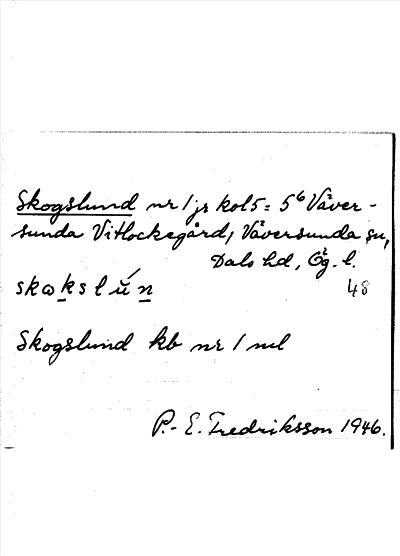 Skogslund nr 1 jr kol 5 = 5⁶ Väver-
sunda Vitlockegård, Väversunda sn,
Dals hd, Ög. l.
skωkslún 48
Skogslund kb nr 1
P.-E. Fredriksson 1946.